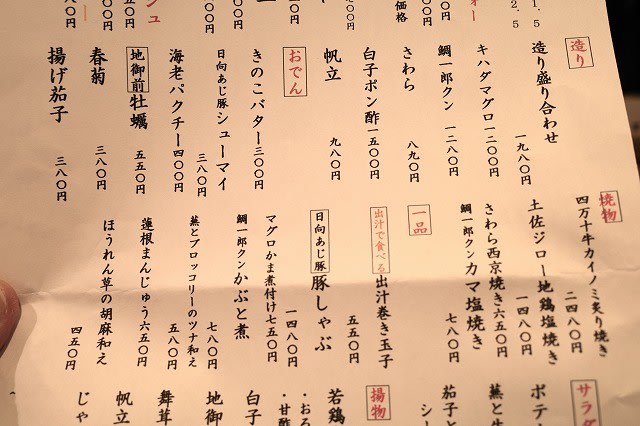 造り
造り盛り合わせ 一九八〇円
キハダマグロ 一二〇〇円
鯛一郎クン 一二八〇円
さわら 八九〇円
白子ポン酢 一五〇〇円
帆立 九八〇円
おでん
きのこバター 三〇〇円
日向あじ豚シューマイ 三八〇円
海老パクチー 四〇〇円
地御前牡蠣 五五〇円
春菊 三八〇円
揚げ茄子 三八〇円
焼物
四万十牛カイノミ炙り焼き 二四八〇円
土佐ジロー地鶏塩焼き 一四八〇円
さわら西京焼き 六五〇円
鯛一郎クンカマ塩焼き 七八〇円
一品
出汁で食べる出汁巻き玉子 五五〇円
日向あじ豚 豚しゃぶ 一四八〇円
マグロかま煮付け 七五〇円
鯛一郎クンかぶと煮 七八〇円
蕪とブロッコリーのツナ和え 五八〇円
蓮根まんじゅう 六五〇円
ほうれん草の胡麻和え 四五〇円
サラダ
ポテ
蕪と生
茄子と
シー
揚物
若鶏
・おろ
・甘酢
白子
地御
舞茸
帆立
じゃ